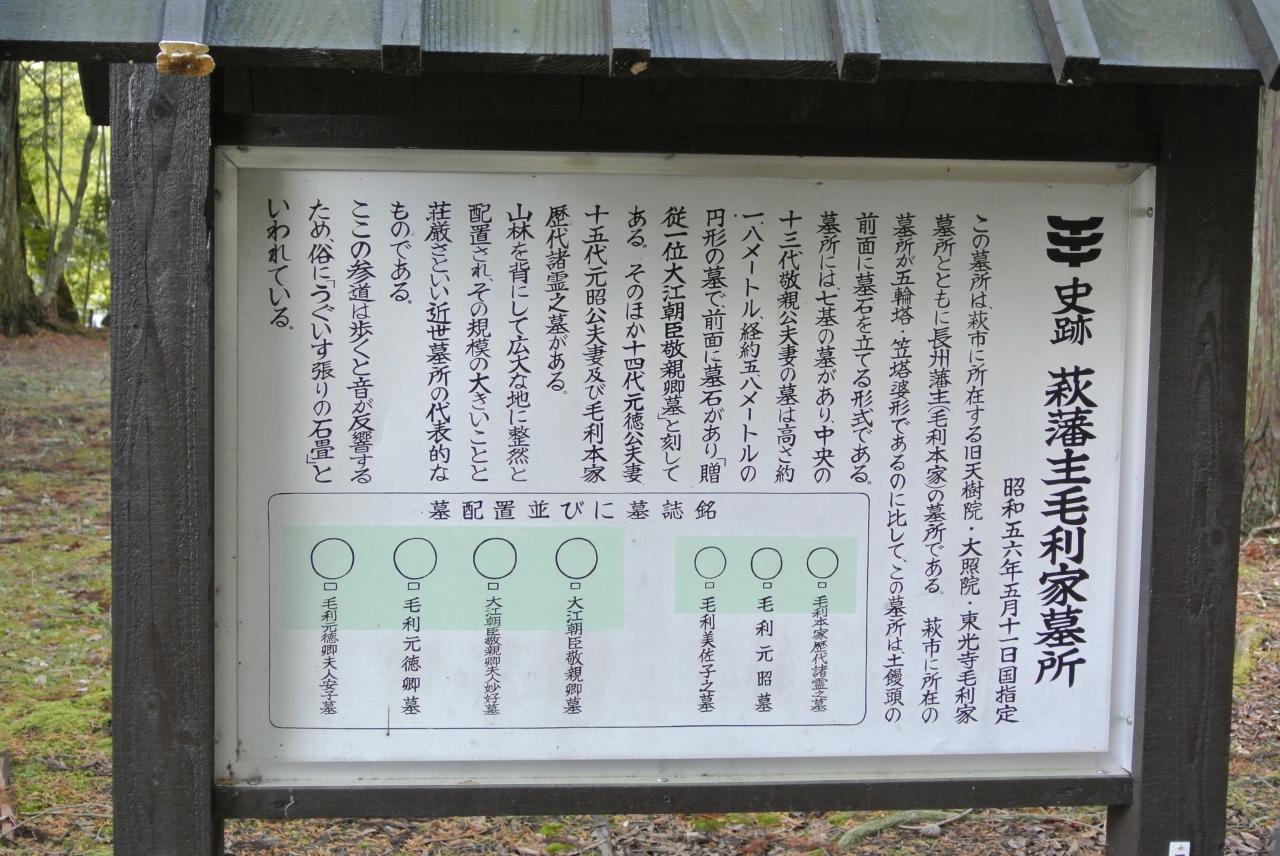 史跡 萩藩主毛利家墓所
昭和五六年五月十一日国指定
この墓所は萩市に所在する旧天樹院・大照院・東光寺毛利家
墓所とともに長州藩主(毛利本家)の墓所である。 萩市に所在の
墓所が五輪塔・笠塔婆形であるのに比して、この墓所は土饅頭の
前面に墓石を立てる形式である。
墓所には七基の墓があり、中央の
十三代敬親公夫妻の墓は高さ約
一.八メートル、経約五.八メートルの
円形の墓で前面に墓石があり「贈
従一位大江朝臣敬親卿墓」と刻して
ある。そのほか十四代元徳公夫妻
十五代元昭公夫妻及び毛利本家
歴代諸霊之墓がある。
山林を背にして広大な地に整然と
配置され、その規模の大きいことと
荘厳さといい近世墓所の代表的な
ものである。
ここの参道は歩くと音が反響する
ため、俗に「うぐいす張りの石畳」と
いわれている。
墓配置並びに墓誌銘
毛利本家歴代諸霊之墓
毛利元昭墓
毛利美佐子之墓
大江朝臣敬親卿墓
大江朝臣敬親卿夫人妙好墓
毛利元徳卿墓
毛利元徳卿夫人安子墓